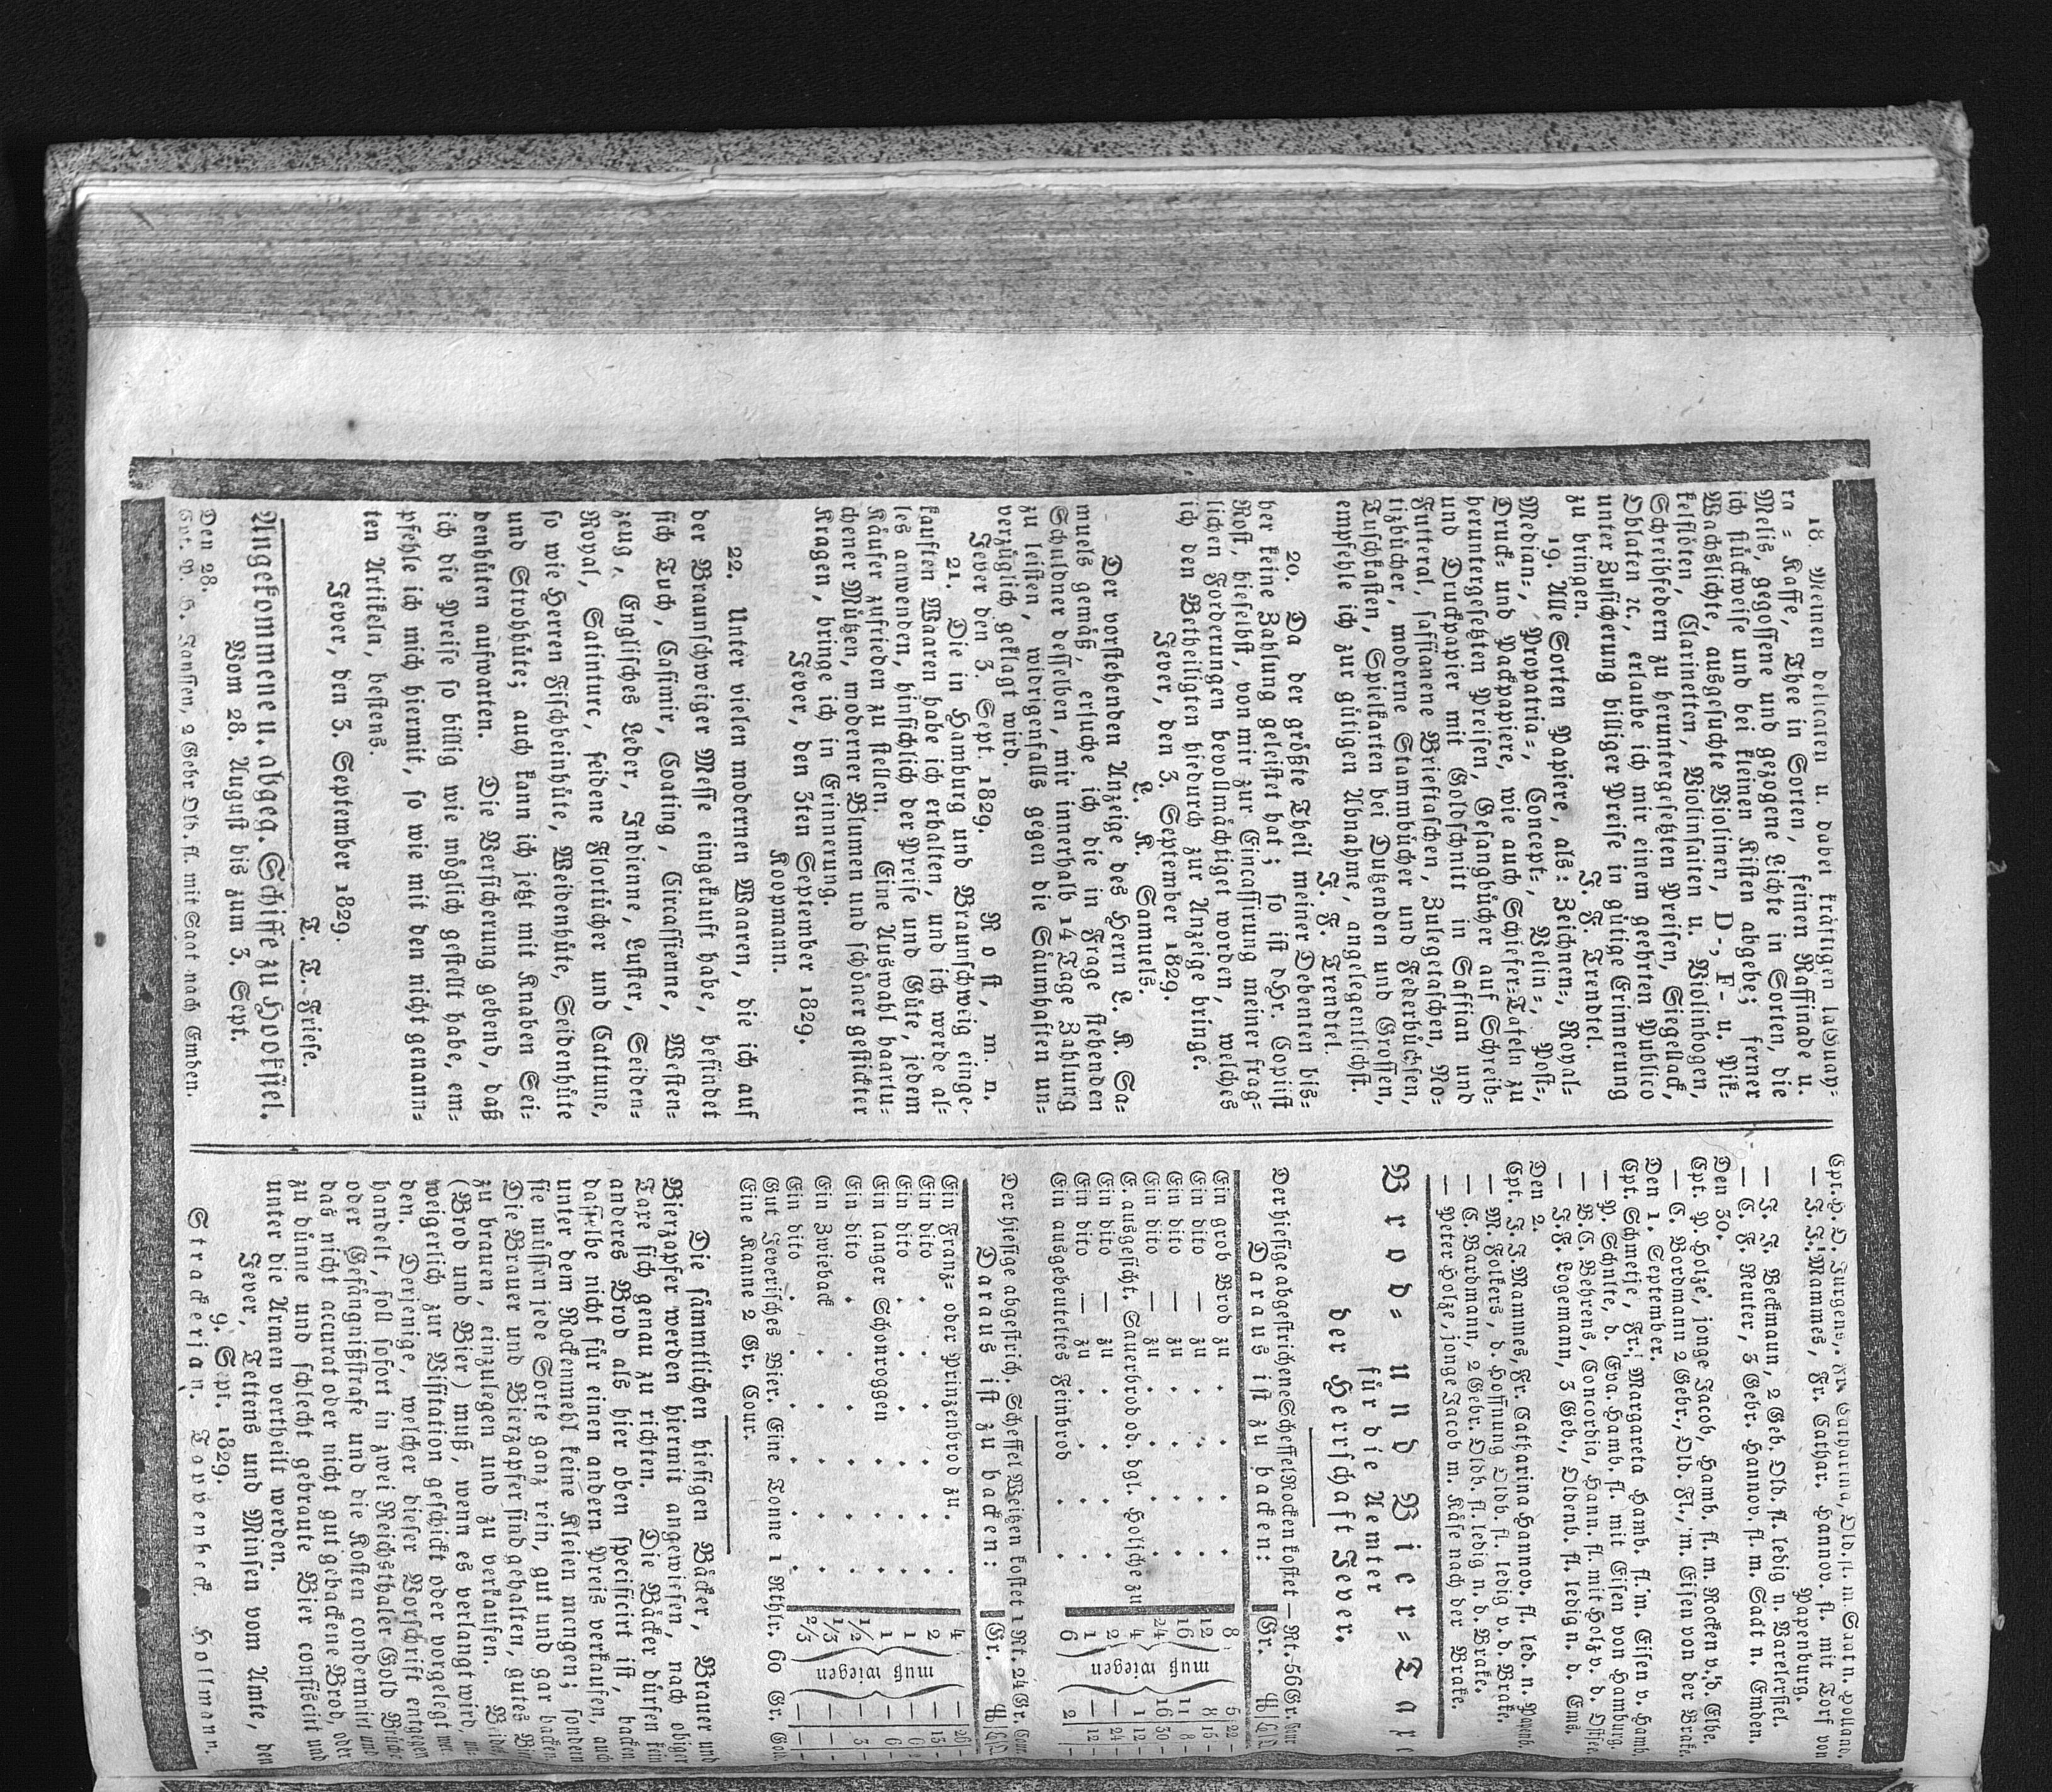 18. Meinen delicaten u. dabei kräftigen
rn = Kaffe, Thee in Sorten, feinen Raffinade u.
Melis, gegossene und gezogene Lichte in Sorten, die
ich stückweise und bei kleinen Kisten abgebe; ferner
Wachslichte, ausgesuchte Violinen, D-, F- u. Pik=
kelflöten, Clarinetten, Violinsaiten u. Violinbogen,
Schreibfedern zu heruntergesetzten Preisen, Siegellack,
Oblaten ꝛc., erlaube ich mir einem geehrten Publico
unter Zusicherung billiger Preise in gütige Erinnerung
zu bringen.
J. F. Trendtel.
19. Alle Sorten Papiere, als: Zeichnen=, Royal=
Median=, Propatria=, Concept=, Velin=, Post=,
Druck= und Packpapiere, wie auch Schiefer=Tafeln zu
heruntergesetzten Preisen, Gesangbücher auf Schreib=
und Druckpapier mit Goldschnitt in Saffian und
Futteral, saffianene Brieftaschen, Zulegetaschen, No=
tizbücher, moderne Stammbücher und Federbüchsen,
Tuschkasten, Spielkarten bei Dutzenden und Grossen,
empfehle ich zur gütigen Abnahme, angelegentlichst.
J. F. Trendtel.
20. Da der größte Theil meiner Debenten bis=
her keine Zahlung geleistet hat; so ist d Hr. Copiist
Most, hieselbst, von mir zur Eincassirung meiner frag=
lichen Forderungen bevollmächtiget worden, welches
ich den Betheiligten hiedurch zur Anzeige bringe.
Jever, den 3. September 1829.
L. K. Samuels.
Der vorstehenden Anzeige des Herrn L. K. Sa=
muels gemäß, ersuche ich die in Frage stehenden
Schuldner desselben, mir innerhalb 14 Tage Zahlung
zu leisten, widrigenfalls gegen die Säumhaften un=
verzüglich geklagt wird.
Jever den 3. Sept. 1829. Most, m. n.
21. Die in Hamburg und Braunschweig einge=
kauften Waaren habe ich erhalten, und ich werde al=
les anwenden, hinsichlich der Preise und Güte, jedem
Käufer zufrieden zu stellen. Eine Auswahl haartu=
chener Mützen, moderner Blumen und schöner gestickter
Kragen, bringe ich in Erinnerung.
Jever, den 3ten September 1829.
Koopmann.
22. Unter vielen modernen Waaren, die ich auf
der Braunschweiger Messe eingekauft habe, befindet
sich Tuch, Casimir, Coating, Circassienne, Westen=
zeug, Englisches Leder, Indienne, Luster, Seiden=
Royal, Satinturc, seidene Flortücher und Cattune,
so wie Herren Fischbeinhüte, Weidenhüte, Seidenhüte
und Strohhüte; auch kann ich jetzt mit Knaben Sei=
denhüten aufwarten. Die Versicherung gebend, daß
ich die Preise so billig wie möglich gestellt habe, em=
pfehle ich mich hiermit, so wie mit den nicht genann=
ten Artikeln, bestens.
Jever, den 3. September 1829.
T. T. Friese.
Angekommene u. abgeg. Schiffe zu Hooksiel.
Vom 28. August bis zum 3. Sept.
Den 28.
Cpt. P. H. Janssen, 2 Gebr Old. fl. mit Saat nach Emden.
Catharina, Old. fl. m Saat n. Holland
— J. F. Mammes, Fr. Cathar. Hannov. fl. mit Torf von
Papenburg.
— J. J. Beckmann, 2 Geb. Old. fl. ledig n. Varelersiel.
— C. F. Reuter, 3 Gebr. Hannov. fl. m. Saat n. Emden.
Den 30.
Cpt. P. Holze, jonge Jacob, Hamb. fl. m. Rocken v. d. Elbe.
— C. Bordmann 2 Gebr., Old. Fl., m. Eisen von der Brake.
Den 1. September.
Cpt. Schmeise, Fr. Margareta Hamb. fl. m. Eisen v. Hamb
— P. Schulte, d. Eva. Hamb. fl. mit Eisen von Hamburg.
— B. G. Behrens, Concordia, Hann. fl. mit Holz v. d.
— J. F. Logemann, 3 Geb, Oldenb. fl. ledig n. d. Ems.
Den 2.
Cpt. J. F. Mammes, Fr. Catharina Hannov. fl. led. n.
— M. Folkers, d. Hoffnung Oldb. fl. ledig v. d. Brake.
— C. Bardmann, 2 Gebr. Oldb. fl. ledig n. d. Brake.
— Peter Holze, jonge Jacob m. Käse nach der Brake.
Brod= und Bier=Tax
für die Aemter
der Herrschaft Jever.
Der hiesige abgestrichene Scheffel Rocken kostet — Rt. 56 Gr. Cour
Daraus ist zu backen: Gr. ℔ Lth
Ein grob Brod zu 8 5 22 —
Ein dito — zu 12 8 16 —
Ein dito — zu 16 11 8 —
Ein dito — zu 24 16 30 —
E. ausgesicht. Sauerbrod od. dgl. Holsche zu 4 1 12 —
Ein dito — zu 2 — 24 —
Ein dito — zu 1 — 12 —
Ein ausgebeuteltes Feinbrod 6 2 —
muß wiegen
Der hiesige abgestrich. Scheffel Weitzen kostet 1 Rt. 24 Gr. Cour.
Daraus ist zu backen: Gr. ℔ Lth
Ein Franz= oder Prinzenbrod zu 4 — 26 —
Ein dito 2 — 13 —
Ein dito 1 — 6
Ein langer Schonroggen 1 — 6 —
Ein dito 1/2 — 3 —
Ein Zwieback 1/3 — —
Ein dito 2/3 — —
muß wiegen
Gut Jeverisches Bier. Eine Tonne 1 Rthlr. 60 Gr. Cour
Eine Kanne 2 Gr. Cour.
Die sämmtlichen hiesigen Bäcker, Brauer und
Bierzapfer werden hiermit angewiesen, nach obiger
Taxe sich genau zu richten. Die Bäcker dürfen kein
anderes Brod als hier oben specificirt ist, backen
dasselbe nicht für einen andern Preis verkaufen, auch
unter dem Rockenmehl keine Kleien mengen; sondern
sie müssen jede Sorte ganz rein, gut und gar backen.
Die Brauer und Bierzapfer sind gehalten, gutes Bier
zu brauen, einzulegen und zu verkaufen. Beides
(Brod und Bier) muß, wenn es verlangt wird,
weigerlich zur Visitation geschickt oder vorgelegt wer
den. Derjenige, welcher dieser Vorschrift entgegen
handelt, soll sofort in zwei Reichsthaler Gold Brüche
oder Gefängnißstrafe und die Kosten condemnirt und
das nicht accurat oder nicht gut gebackene Brod, oder
zu dünne und schlecht gebraute Bier confiscirt und
unter die Armen vertheilt werden.
Jever, Tettens und Minsen vom Amte, den
9. Sept. 1829.
Strackerjan. Toddenhed. Hollmann.